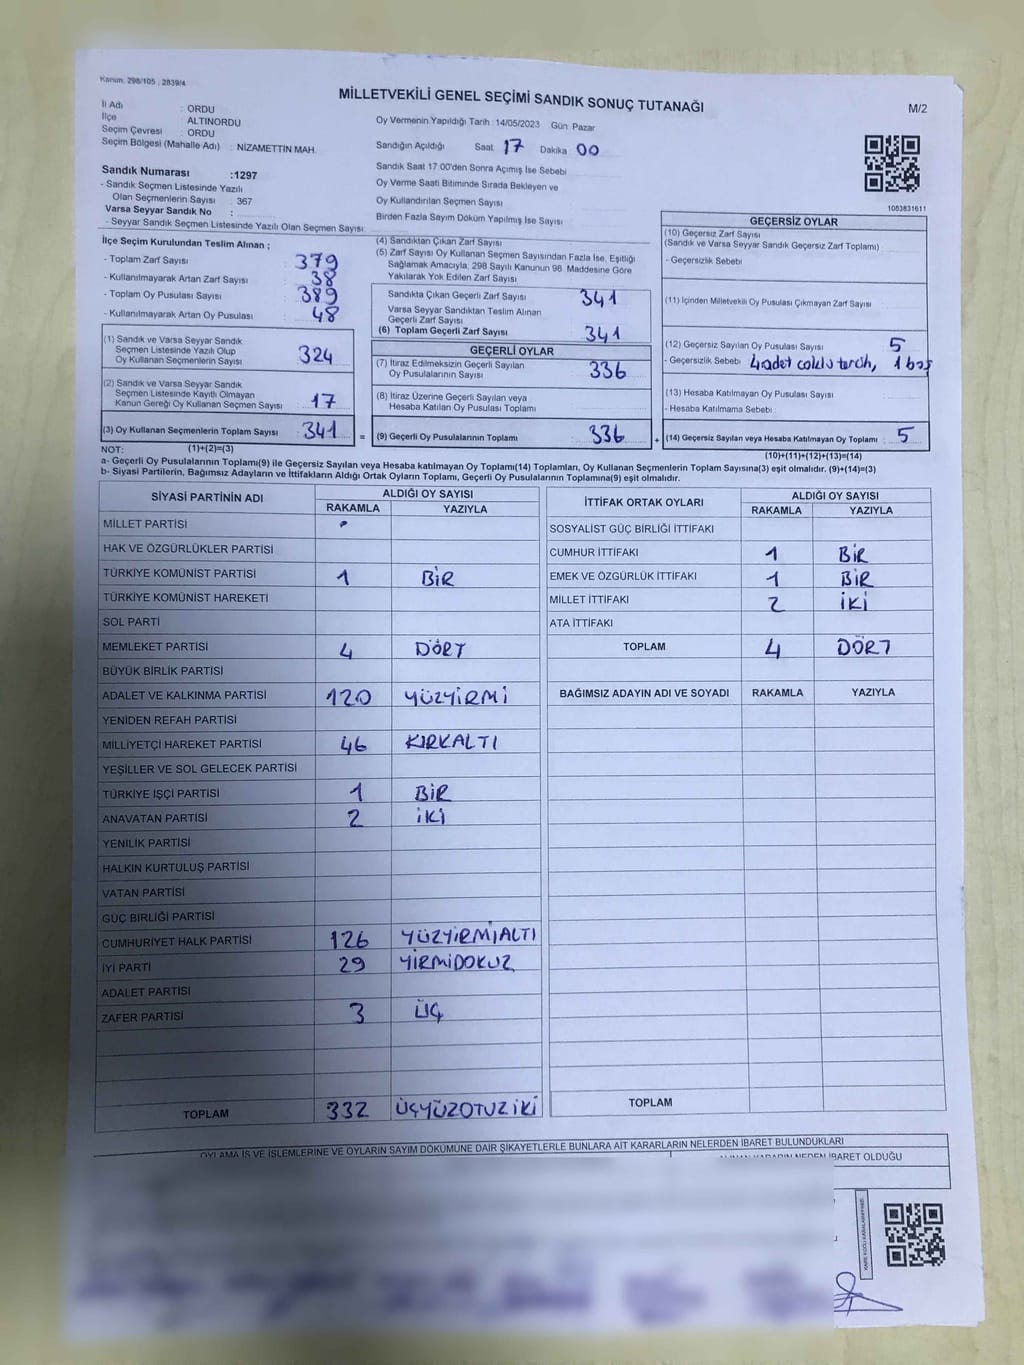 Kanun: 298/105 ; 2839/4
MİLLETVEKİLİ GENEL SEÇİMİ SANDIK SONUÇ TUTANAĞI
M/2
İl Adı : ORDU
İlçe : ALTINORDU
Seçim Çevresi : ORDU
Seçim Bölgesi (Mahalle Adı) : NİZAMETTİN MAH.
Oy Vermenin Yapıldığı Tarih :14/05/2023 Gün: Pazar
Sandığın Açıldığı Saat 17 Dakika 00
Sandık Saat 17:00'den Sonra Açımış İse Sebebi
Oy Verme Saati Bitiminde Sırada Bekleyen ve
Oy Kullandırılan Seçmen Sayısı
Birden Fazla Sayım Döküm Yapılmış İse Sayısı
1083831611
Sandık Numarası :1297
- Sandık Seçmen Listesinde Yazılı
Olan Seçmenlerin Sayısı : 367
Varsa Seyyar Sandık No :
- Seyyar Sandık Seçmen Listesinde Yazılı Olan Seçmen Sayısı
İlçe Seçim Kurulundan Teslim Alınan ;
- Toplam Zarf Sayısı : 379
- Kullanılmayarak Artan Zarf Sayısı : 38
- Toplam Oy Pusulası Sayısı : 389
- Kullanılmayarak Artan Oy Pusulası : 48
(1) Sandık ve Varsa Seyyar Sandık
Seçmen Listesinde Yazılı Olup
Oy Kullanan Seçmenlerin Sayısı : 324
(2) Sandık ve Varsa Seyyar Sandık
Seçmen Listesinde Kayıtlı Olmayan
Kanun Gereği Oy Kullanan Seçmen Sayısı : 17
(3) Oy Kullanan Seçmenlerin Toplam Sayısı : 341
(1)+(2)=(3)
(4) Sandıktan Çıkan Zarf Sayısı
(5) Zarf Sayısı Oy Kullanan Seçmen Sayısından Fazla İse, Eşitliği
Sağlamak Amacıyla, 298 Sayılı Kanunun 98. Maddesine Göre
Yakılarak Yok Edilen Zarf Sayısı
Sandıkta Çıkan Geçerli Zarf Sayısı : 341
Varsa Seyyar Sandıktan Teslim Alınan
Geçerli Zarf Sayısı
(6) Toplam Geçerli Zarf Sayısı : 341
GEÇERLİ OYLAR
(7) İtiraz Edilmeksizin Geçerli Sayılan
Oy Pusulalarının Sayısı : 336
(8) İtiraz Üzerine Geçerli Sayılan veya
Hesaba Katılan Oy Pusulası Toplamı
= (9) Geçerli Oy Pusulalarının Toplamı : 336
GEÇERSİZ OYLAR
(10) Geçersiz Zarf Sayısı
(Sandık ve Varsa Seyyar Sandık Geçersiz Zarf Toplamı)
- Geçersizlik Sebebi
(11) İçinden Milletvekili Oy Pusulası Çıkmayan Zarf Sayısı
(12) Geçersiz Sayılan Oy Pusulası Sayısı : 5
- Geçersizlik Sebebi : 4 adet çoklu tercih, 1 boş
(13) Hesaba Katılmayan Oy Pusulası Sayısı
- Hesaba Katılmama Sebebi :
+ (14) Geçersiz Sayılan veya Hesaba Katılmayan Oy Toplamı : 5
(10)+(11)+(12)+(13)=(14)
NOT:
a- Geçerli Oy Pusulalarının Toplamı(9) ile Geçersiz Sayılan veya Hesaba katılmayan Oy Toplamı(14) Toplamları, Oy Kullanan Seçmenlerin Toplam Sayısına(3) eşit olmalıdır. (9)+(14)=(3)
b- Siyasi Partilerin, Bağımsız Adayların ve İttifakların Aldığı Ortak Oyların Toplamı, Geçerli Oy Pusulalarının Toplamına(9) eşit olmalıdır.
SİYASİ PARTİNİN ADI ALDIĞI OY SAYISI
RAKAMLA YAZIYLA
MİLLET PARTİSİ
HAK VE ÖZGÜRLÜKLER PARTİSİ
TÜRKİYE KOMÜNİST PARTİSİ 1 BİR
TÜRKİYE KOMÜNİST HAREKETİ
SOL PARTİ
MEMLEKET PARTİSİ 4 DÖRT
BÜYÜK BİRLİK PARTİSİ
ADALET VE KALKINMA PARTİSİ 120 YÜZYİRMİ
YENİDEN REFAH PARTİSİ
MİLLİYETÇİ HAREKET PARTİSİ 46 KIRKALTI
YEŞİLLER VE SOL GELECEK PARTİSİ
TÜRKİYE İŞÇİ PARTİSİ 1 BİR
ANAVATAN PARTİSİ 2 İKİ
YENİLİK PARTİSİ
HALKIN KURTULUŞ PARTİSİ
VATAN PARTİSİ
GÜÇ BİRLİĞİ PARTİSİ
CUMHURİYET HALK PARTİSİ 126 YÜZYİRMİALTI
İYİ PARTİ 29 YİRMİDOKUZ
ADALET PARTİSİ
ZAFER PARTİSİ 3 ÜÇ
TOPLAM 332 ÜÇYÜZOTUZİKİ
İTTİFAK ORTAK OYLARI ALDIĞI OY SAYISI
RAKAMLA YAZIYLA
SOSYALİST GÜÇ BİRLİĞİ İTTİFAKI
CUMHUR İTTİFAKI 1 BİR
EMEK VE ÖZGÜRLÜK İTTİFAKI 1 BİR
MİLLET İTTİFAKI 2 İKİ
ATA İTTİFAKI
TOPLAM 4 DÖRT
BAĞIMSIZ ADAYIN ADI VE SOYADI RAKAMLA YAZIYLA
TOPLAM
OYLAMA İŞ VE İŞLEMLERİNE VE OYLARIN SAYIM DÖKÜMÜNE DAİR ŞİKAYETLERLE BUNLARA AİT KARARLARIN NELERDEN İBARET BULUNDUKLARI
ALINAN KARARIN NEDEN İBARET OLDUĞU